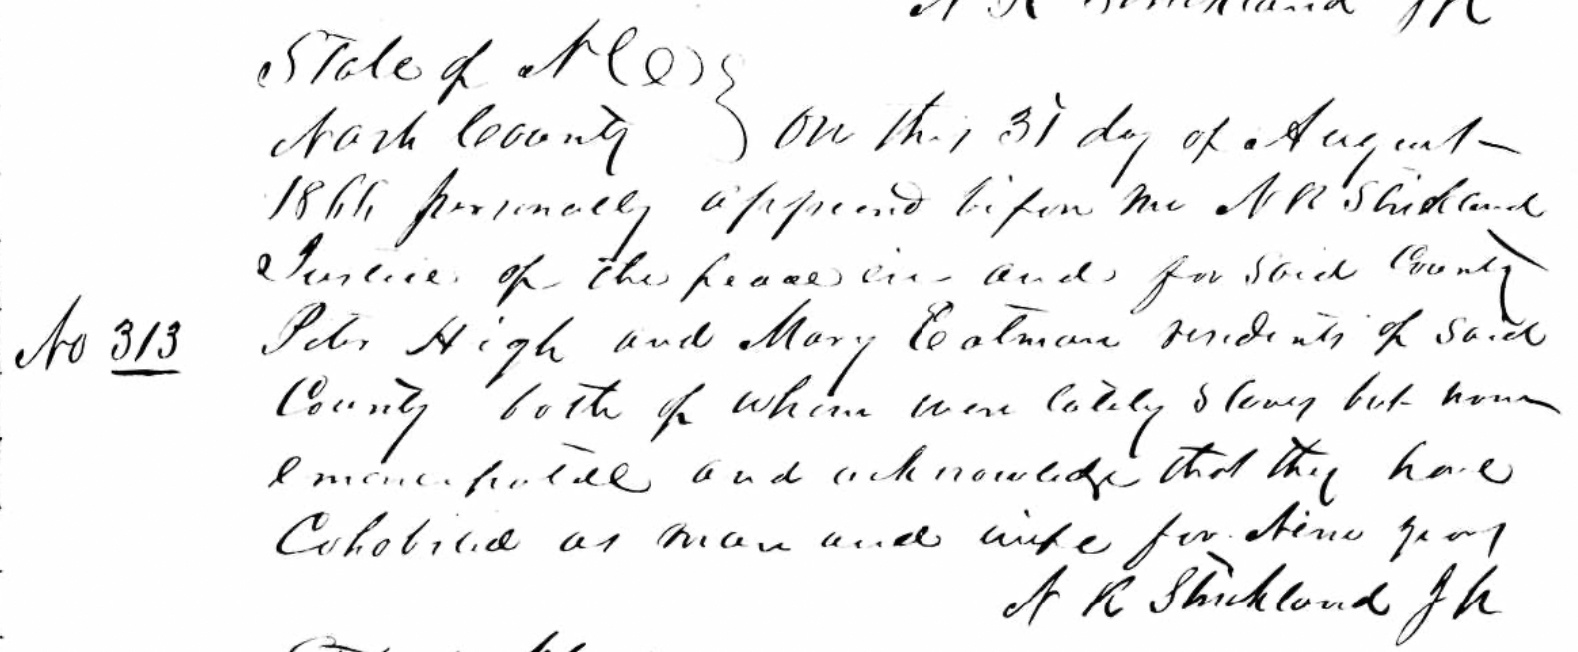 N R Strickland JP
State of N C
Nash County } On this 31 day of August
1866 personally appeard before me N R Strickland
Justice of the peace in and for said County
No 313 Peter High and Mary Eatman residents of said
County both of whom were lately slaves but now
emancipated and acknowledge that they have
Cohabited as man and wife for Nine years
N R Strickland JP